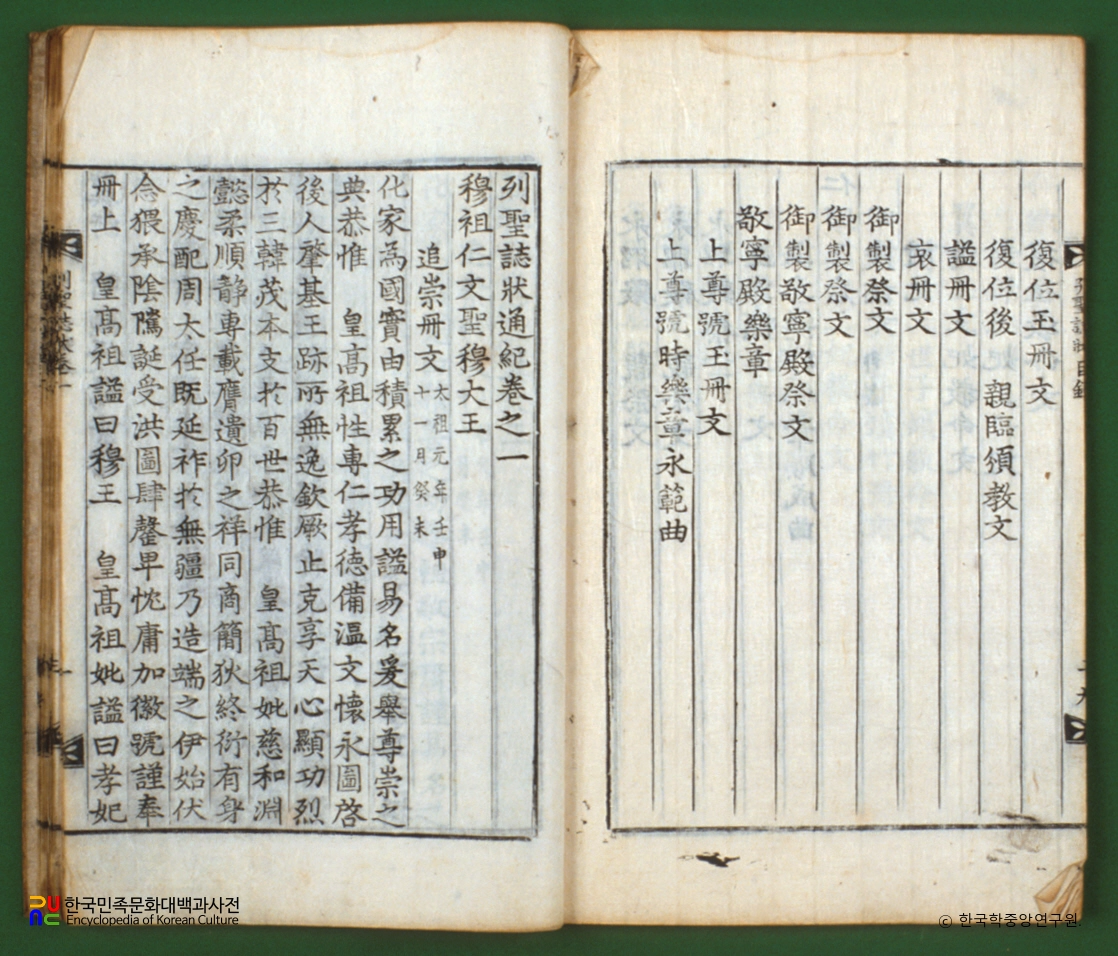 復位玉冊文
復位後 親臨頒教文
諡冊文
哀冊文
御製祭文
御製祭文
御製敬寧殿祭文
敬寧殿樂章
上尊號玉冊文
上尊號時樂章永範曲
列聖誌狀通紀卷之一
穆祖仁文聖穆大王
追崇冊文 太祖元年壬申
十一月癸未
化家為國實由積累之功用諡易名爰舉尊崇之
典恭惟 皇高祖性專仁孝德備溫文懷永圖啓
後人肇基王跡所無逸欽厥止克享天心顯功烈
於三韓茂本支於百世恭惟 皇高祖妣慈和淵
懿柔順靜專載膺遺卵之祥同商簡狄終衍有身
之慶配周大任既延祚於無疆乃造端之伊始伏
念猥承陰隲誕受洪圖肆罄卑忱庸加徽號謹奉
冊上 皇高祖諡曰穆王 皇高祖妣諡曰孝妃
한국민족문화대백과사전
Encyclopedia of Korean Culture
© 한국학중앙연구원